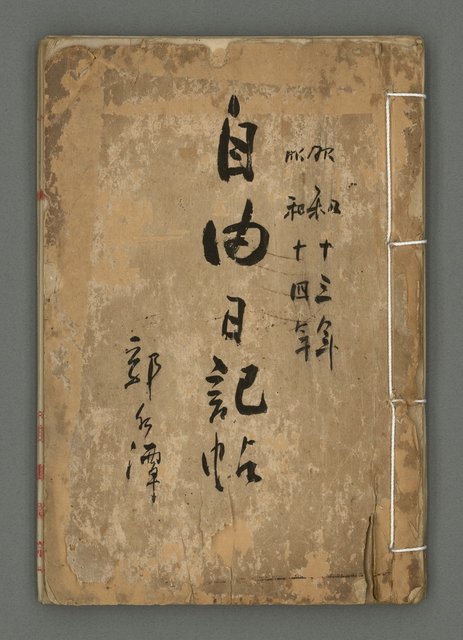 昭和十三年
昭和十四年
自由日記帖
郭水潭